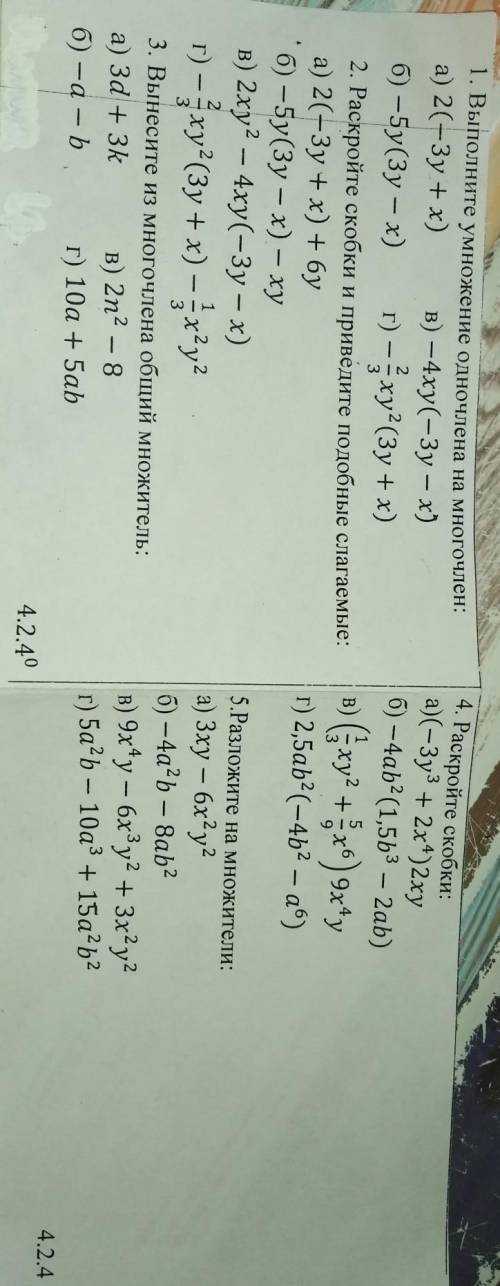 1. Выполните умножение одночлена на многочлен:
а) 2(−3y + x) в) −4xy(−3y − x)
б) −5y(3y − x) г) −2/3 xy²(3y + x)
2. Раскройте скобки и приведите подобные слагаемые:
а) 2(−3y + x) + 6y
б) −5y(3y − x) − xy
в) 2xy² − 4xy(−3y − x)
г) −2/3 xy²(3y + x) − 1/3 x²y²
3. Вынесите из многочлена общий множитель:
а) 3d + 3k в) 2n² − 8
б) −a − b г) 10a + 5ab
4.2.4⁰
4. Раскройте скобки:
а)(−3y³ + 2x⁴)2xy
б) −4ab²(1,5b³ − 2ab)
в) (1/3 xy² + 5/9 x⁶) 9x⁴y
г) 2,5ab²(−4b² − a⁶)
5.Разложите на множители:
а) 3xy − 6x²y²
б) −4a²b − 8ab²
в) 9x⁴y − 6x³y² + 3x²y²
г) 5a²b − 10a³ + 15a²b²
4.2.4